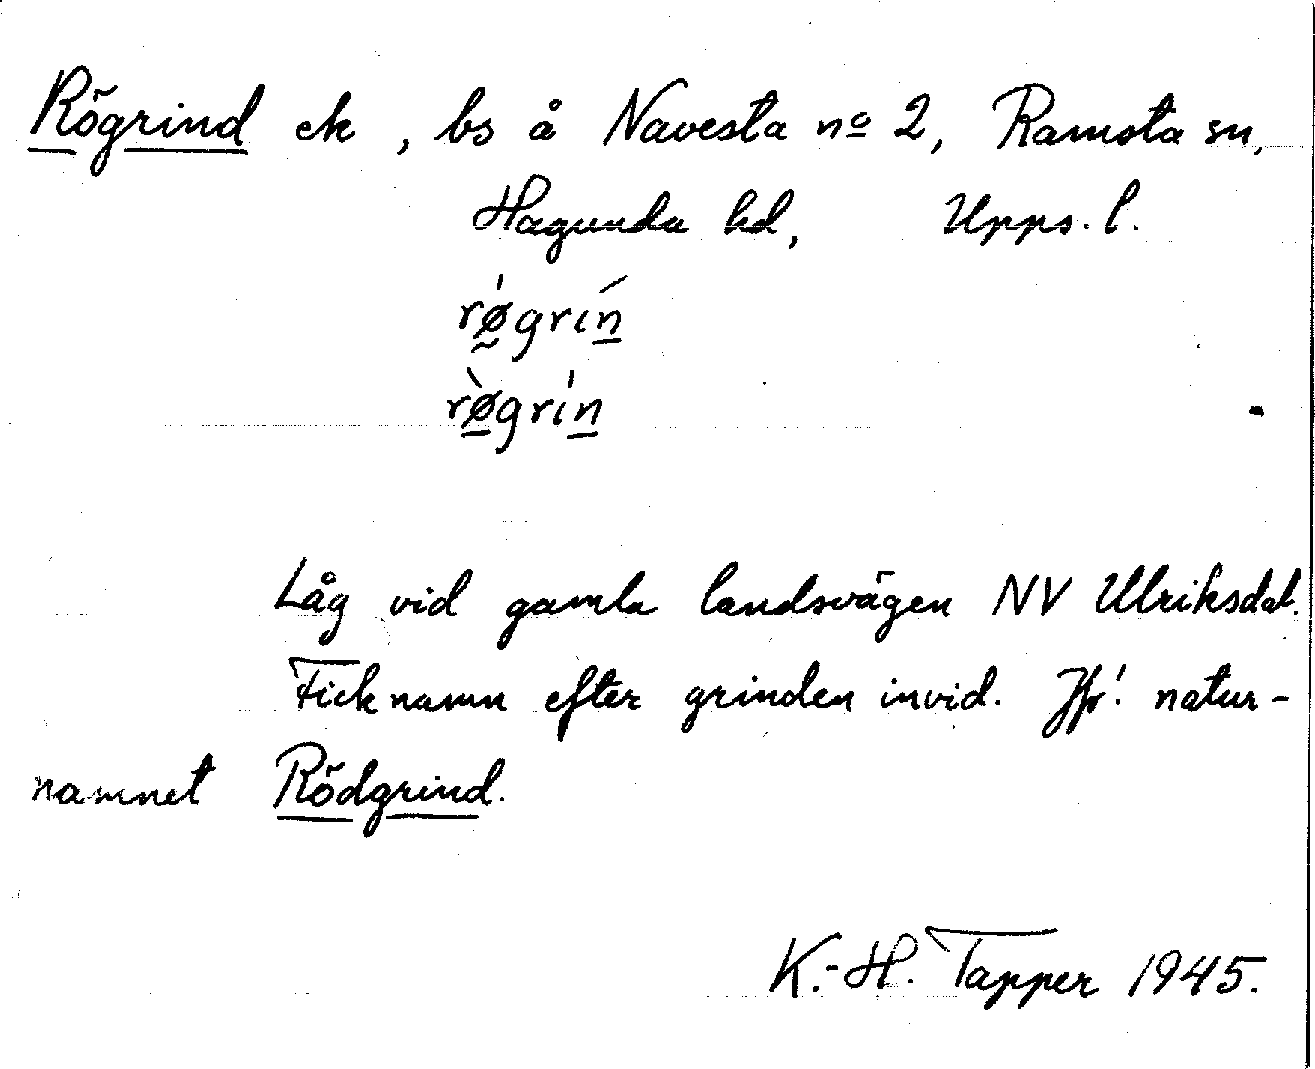 Rögrind ek , bs å Navesta nº 2, Ramsta sn,
Hagunda hd, Upps. l.
rǿgrín
rø̀grín
Låg vid gamla landsvägen NV Ulriksdal.
Fick namn efter grinden invid. Jfr! natur-
namnet Rödgrind.
K.-H. Tapper 1945.